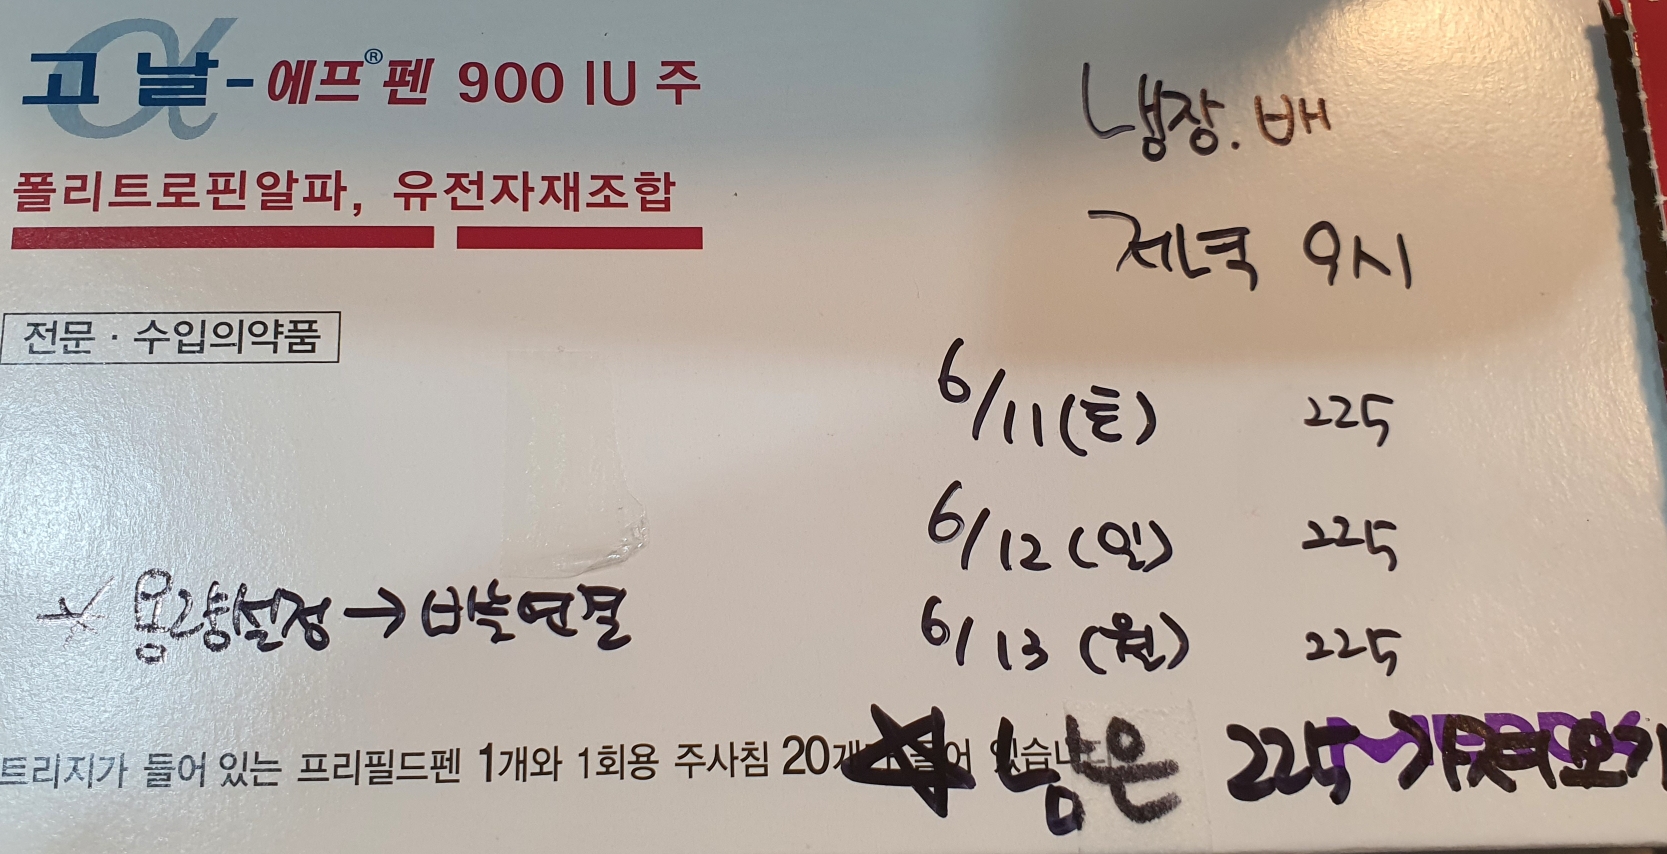 고날-에프®펜 900 IU 주
폴리트로핀알파, 유전자재조합
전문·수입의약품
냉장. 배
저녁 9시
6/11 (토) 225
6/12 (일) 225
6/13 (월) 225
용량설정 → 바늘연결
트리지가 들어 있는 프리필드펜 1개와 1회용 주사침 20개가 들어 있습니
남은 225 가져오기